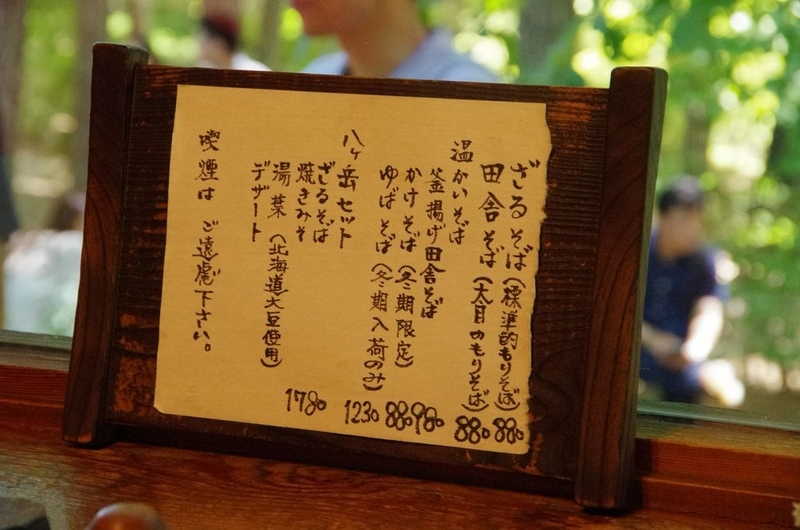 ざるそば(標準的もりそば) 880
田舎そば(太目のもりそば) 880
温かいそば
釜揚げ田舎そば 980
かけそば(冬期限定) 880
ゆばそば(冬期入荷のみ) 1230
八ヶ岳セット
ざるそば
焼きみそ 1780
湯葉(北海道大豆使用)
デザート
喫煙はご遠慮下さい。